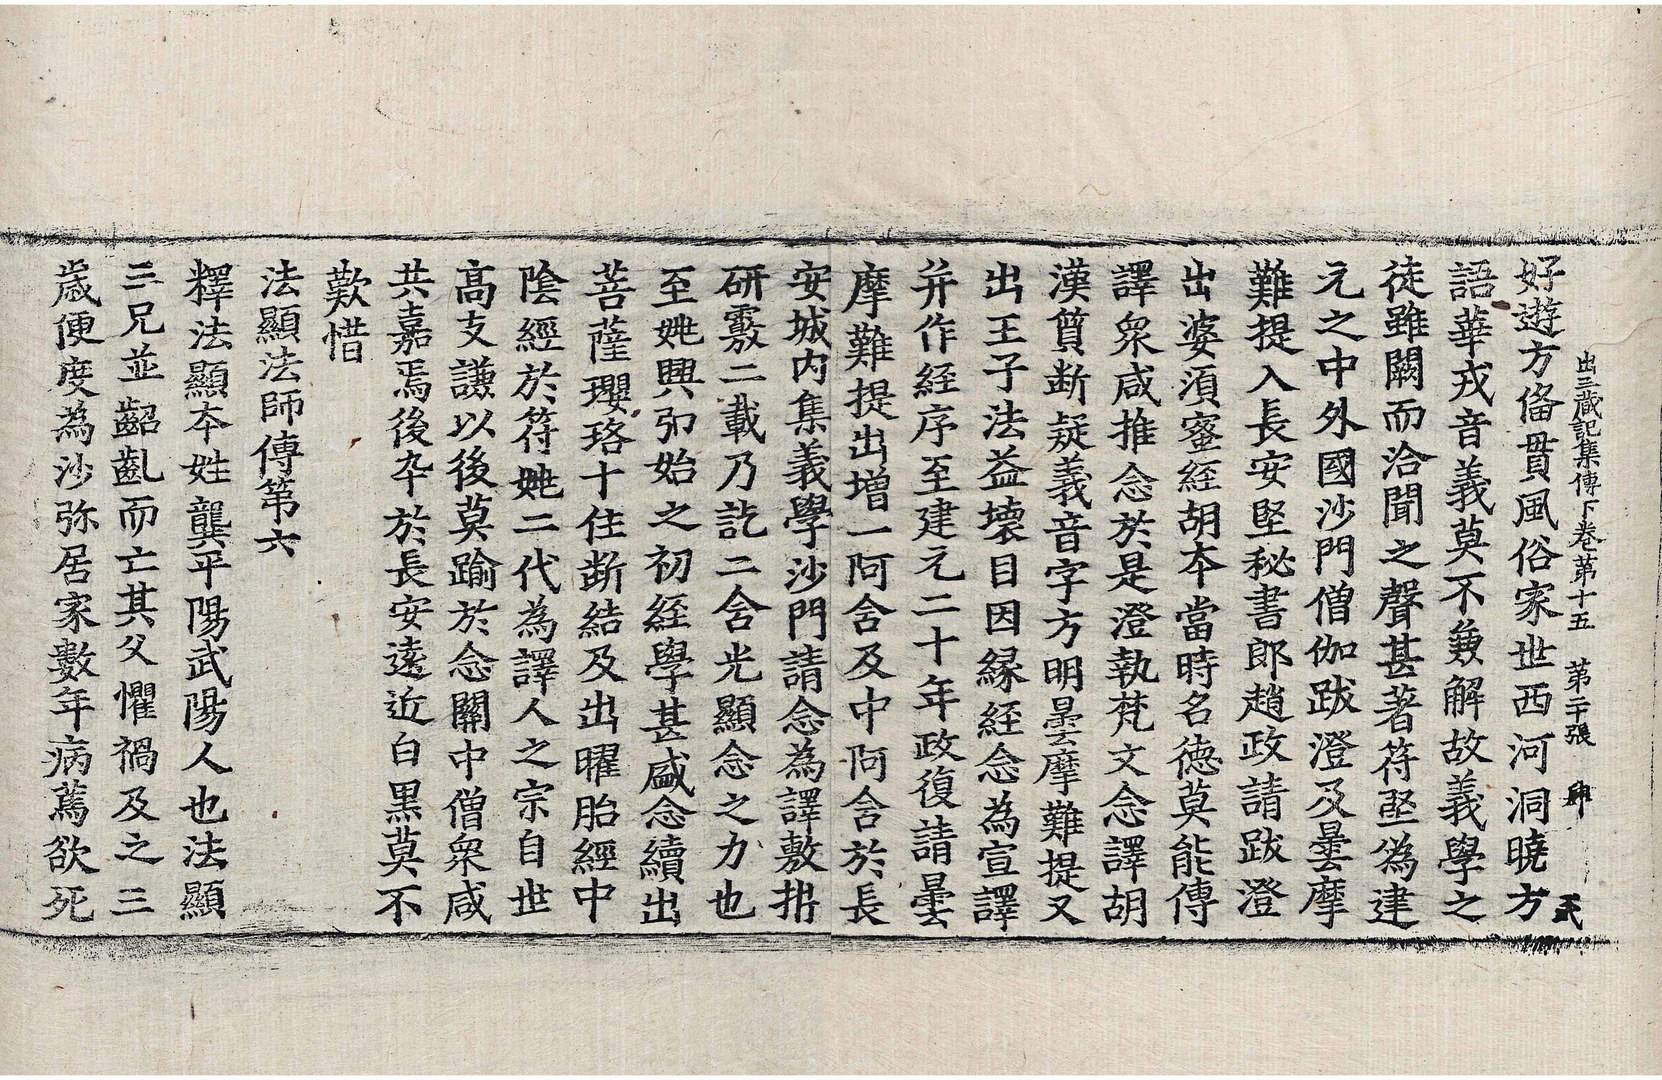 出三藏記集傳下卷第十五 第二十張
好遊方俻貫風俗家世西河洞曉方
語華戎音義莫不兼解故義學之
徒雖闕而洽聞之聲甚著符堅為建
元之中外國沙門僧伽跋澄及曇摩
難提入長安堅秘書郎趙政請跋澄
出婆湏蜜經胡本當時名德莫能傳
譯衆咸推念於是澄執梵文念譯胡
漢質斷疑義音字方明曇摩難提又
出王子法益壞目因縁経念為宣譯
并作経序至建元二十年政復請曇
摩難提出増一阿含及中阿含於長
安城內集義學沙門請念為譯敷㭊
研覈二載乃訖二含光顯念之力也
至姚興弘始之初経學甚盛念續出
菩薩瓔珞十住斷結及出曜胎經中
陰經於符姚二代為譯人之宗自世
高支謙以後莫踰於念關中僧衆咸
共嘉焉後卒於長安遠近白黒莫不
歎惜
法顯法師傳第六
釋法顯本姓龔平陽武陽人也法顯
三兄並齠亂而亡其父懼禍及之三
歲便度為沙弥居家數年病篤欲死